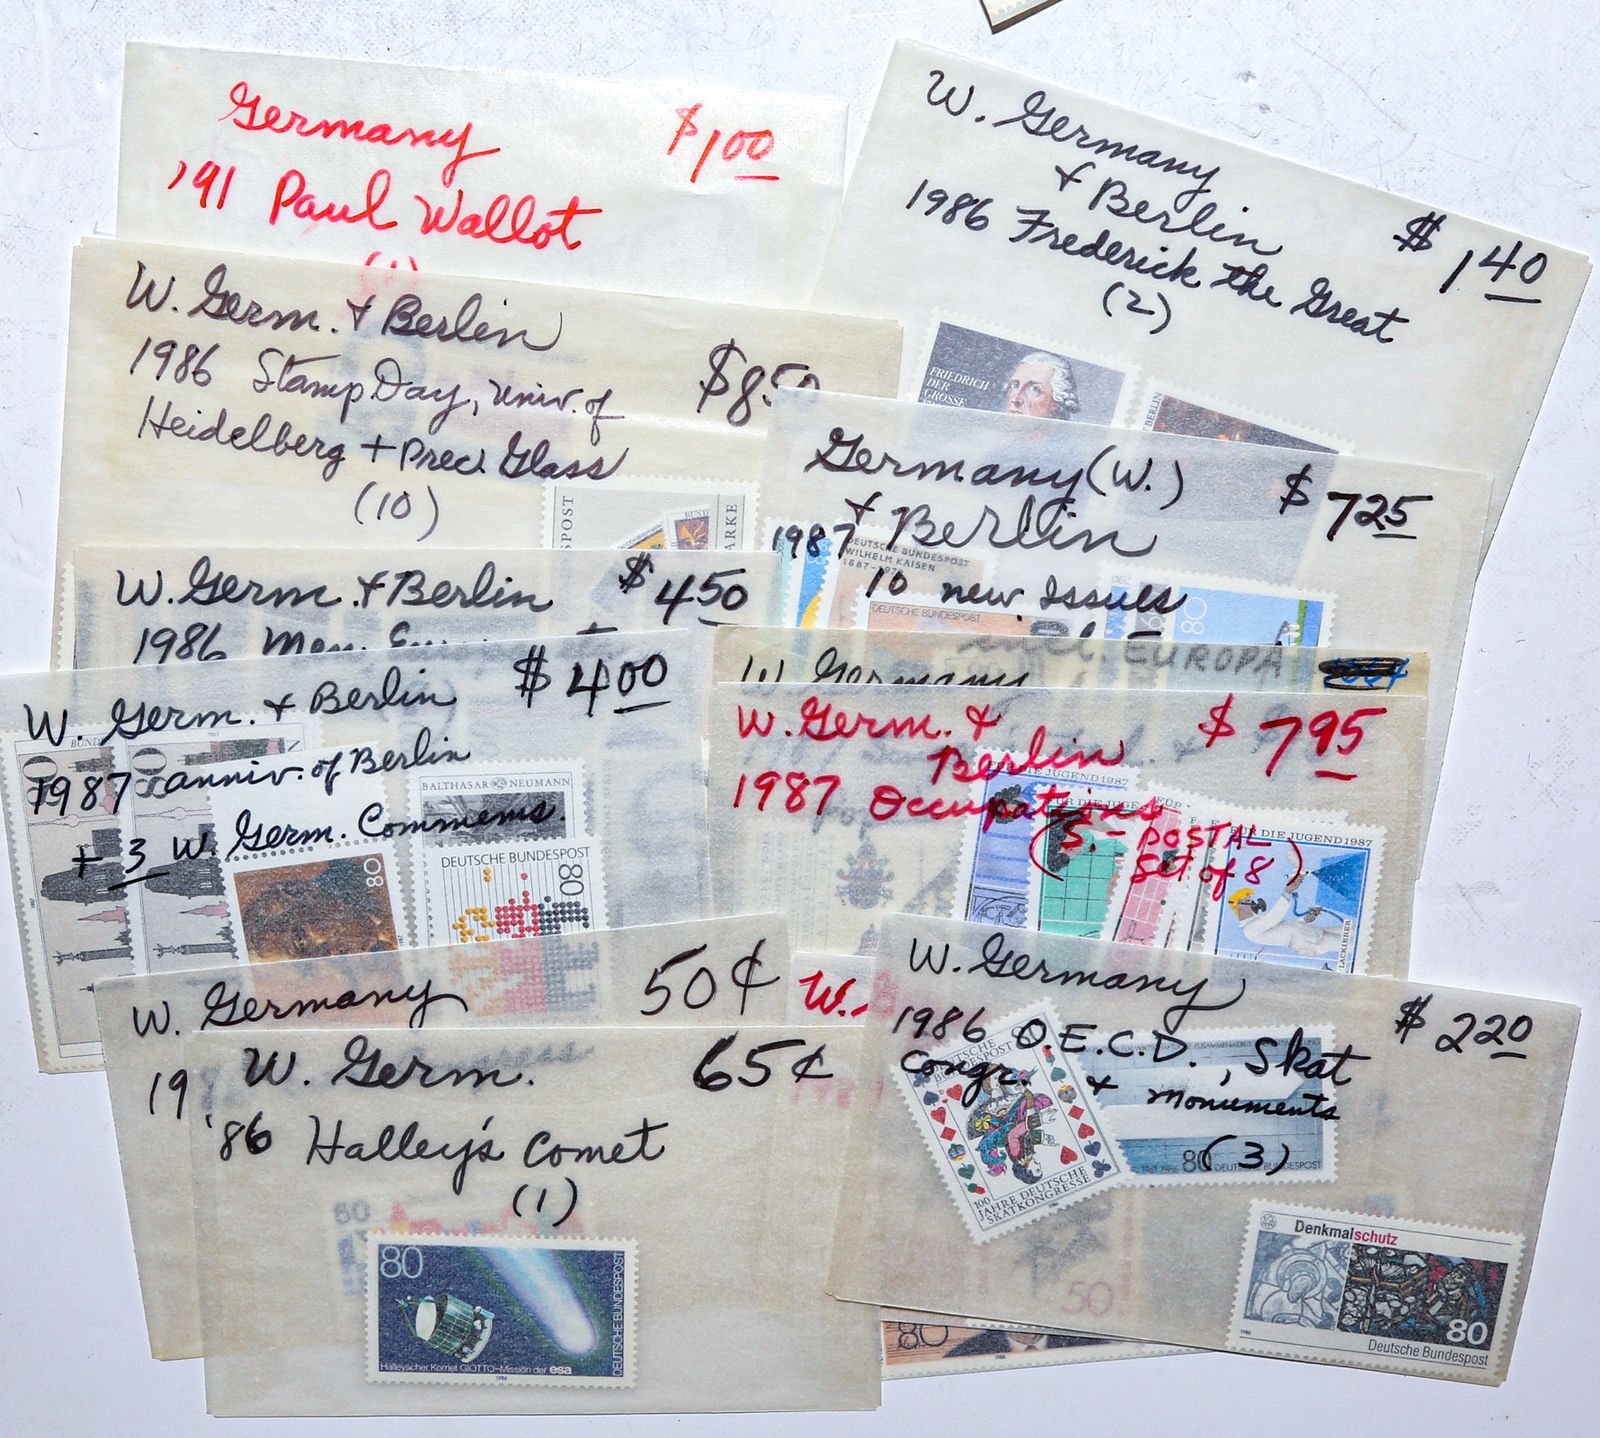 Germany $1 00
'91 Paul Wallot
(1)
W. Germany
& Berlin
1986 Frederick the Great $1 40
(2)
FRIEDRICH
DER
GROSSE
BERLIN
W. Germ. & Berlin
1986 Stamp Day, Univ. of $8 50
Heidelberg + Prec. Glass
(10)
POST
BUND
ARKE
Germany (W.) $7 25
& Berlin
1987
10 new Issues
incl. EUROPA
DEUTSCHE BUNDESPOST
WILHELM KAISEN
1887-1979
DEUTSCHE BUNDESPOST
80
W. Germ. & Berlin $4 50
1986
W. Germany
W. Germ. & Berlin $4 00
1987 anniv. of Berlin
+ 3 W. Germ. Commems.
BUND
BALTHASAR NEUMANN
80
DEUTSCHE BUNDESPOST
80
W. Germ. & $7 95
Berlin
1987 Occupations
(S.-POSTAL
Set of 8)
FÜR DIE JUGEND 1987
FÜR DIE JUGE
FÜR
FÜR DIE JUGEND 1987
LACKIERER
W. Germany 50¢
19
W.
W. Germ. 65¢
'86 Halley's Comet
(1)
60
80
DEUTSCHE BUNDESPOST
Halleyscher Komet GIOTTO-Mission der esa
1986
W. Germany
1986 O.E.C.D., Skat $2 20
Congr. & Monuments
(3)
DEUTSCHE
BUNDESPOST
80
100
JAHRE DEUTSCHE
SKATKONGRESSE
80 DEUTSCHE BUNDESPOST
50
80
1986
Denkmalschutz
80
1986
Deutsche Bundespost